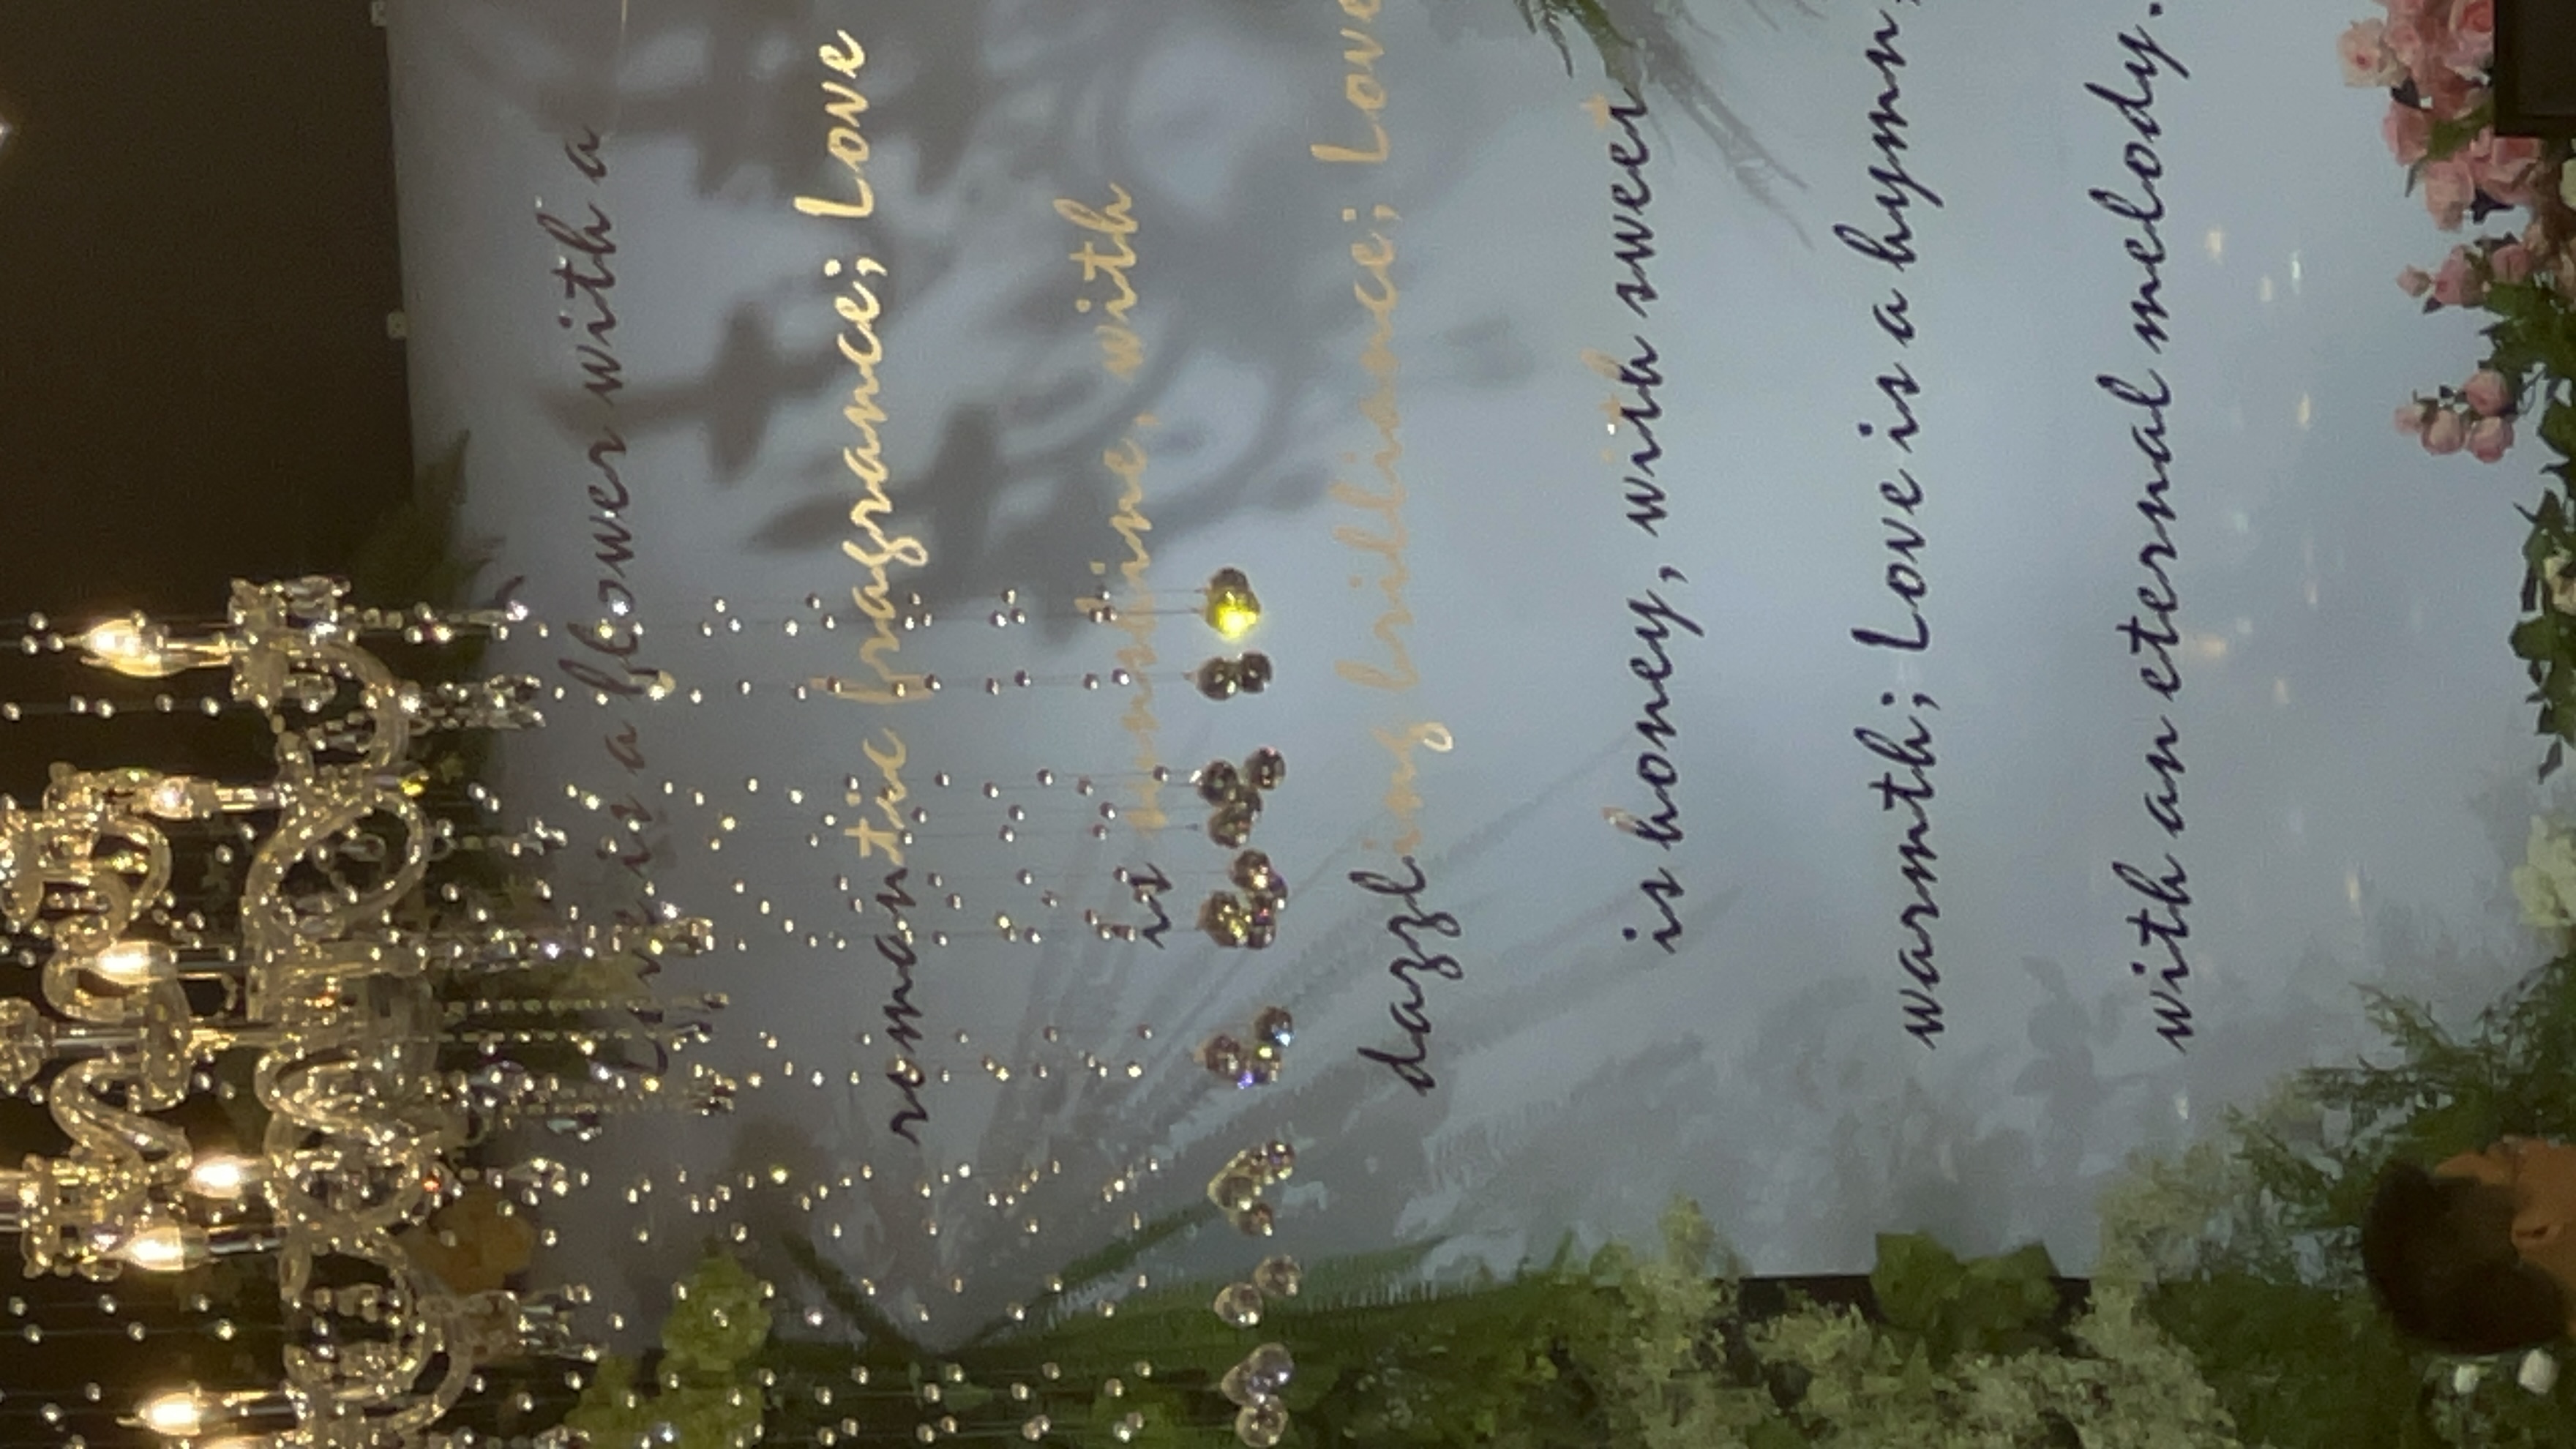 Love is a flower with a
romantic fragrance; Love
is sunshine, with
dazzling brilliance; Love
is honey, with sweet
warmth; Love is a hymn,
with an eternal melody.